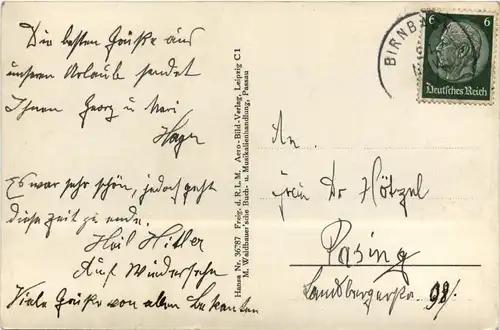 Die besten Grüße aus
unseren Urlaube sendet
Ihnen Georg u
Es war sehr schön, jedoch geht
diese Zeit zu ende.
Heil Hitler
Auf Wiedersehn
Viele Grüße von allen Bekannten
Hansa Nr. 36787 Freig. d. R.L.M. Aero-Bild-Verlag, Leipzig C1
M. Waldbauer'sche Buch- u. Musikalienhandlung, Passau
BIRNB
6 6
Deutsches Reich
An
Dr Hötzel
Pasing
Landsbergerstr. 98/